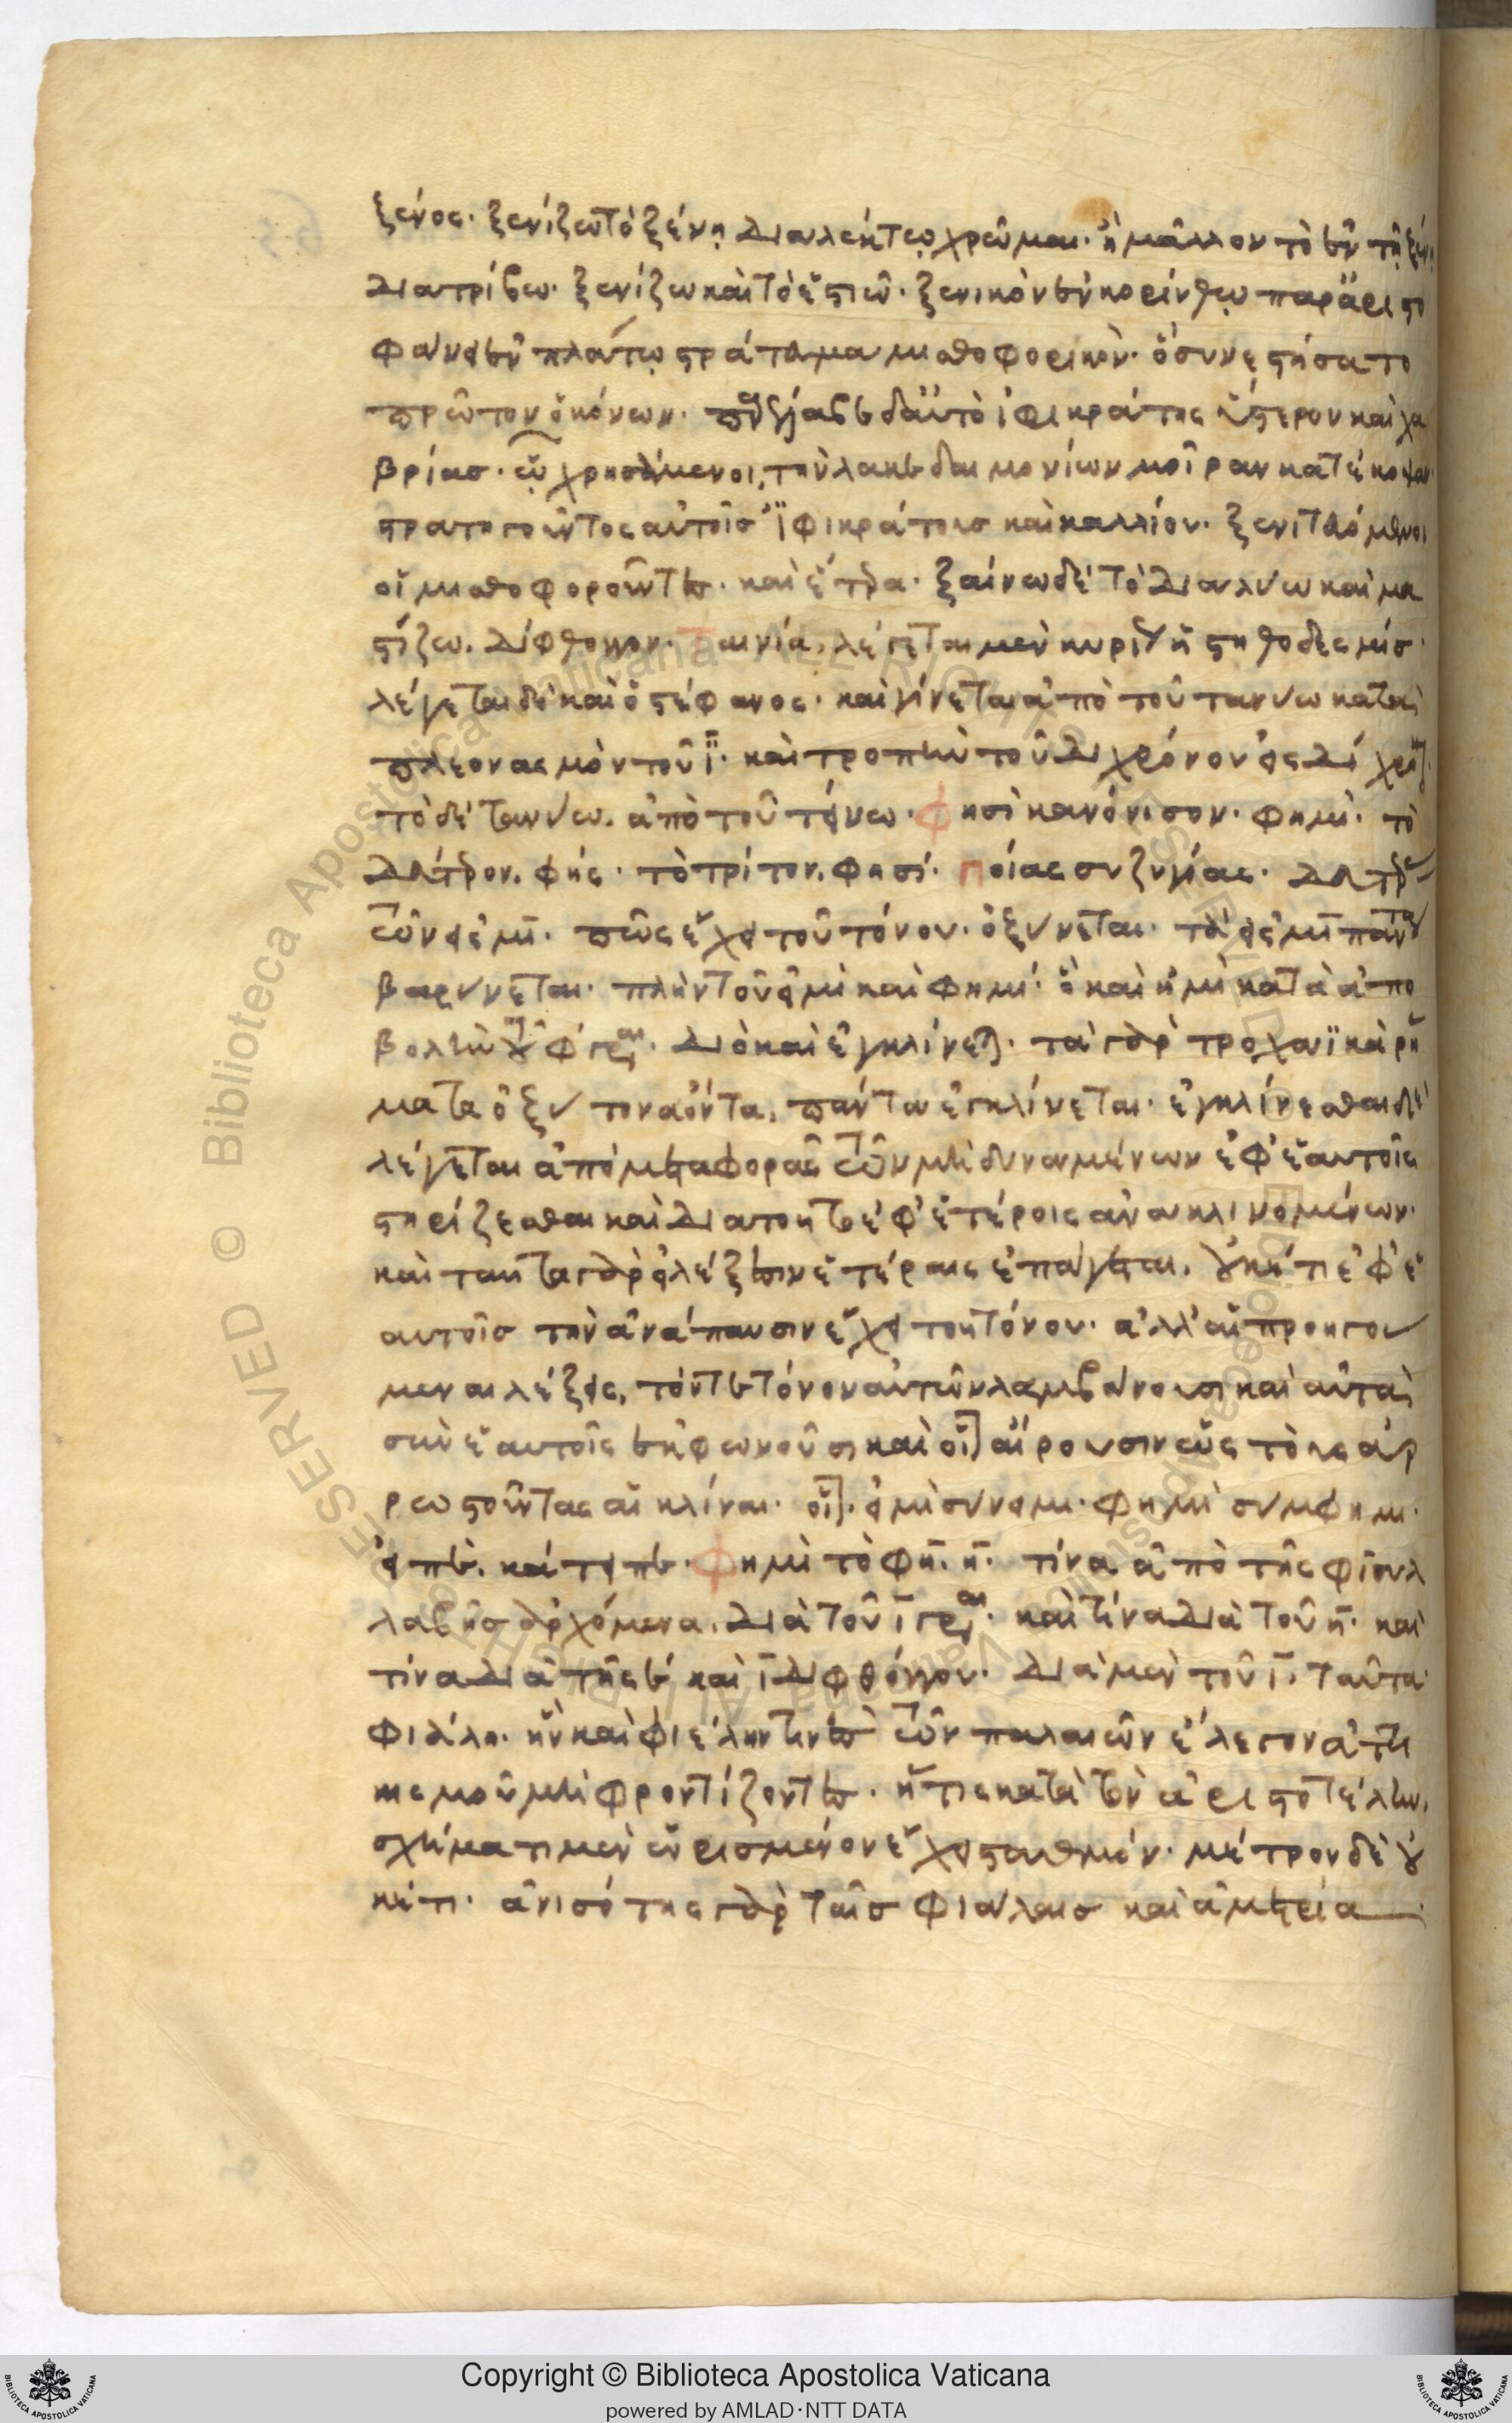 ξένος· ξενίζω τὸ ξένῃ διαλέκτῳ χρῶμαι· ἢ μᾶλλον τὸ ἐν τῇ ξένῃ
διατρίβω· ξενίζω καὶ τὸ ἑστιῶ· ξενικὸν ἐν κορίνθῳ παρ' ἀριστο
φάνει ἐν πλούτῳ στράτευμα μισθοφορικὸν· ὃ συνεστήσατο
πρῶτον ὁ κόνων· παρέλαβε δ' αὐτὸ ἰφικράτης ὕστερον καὶ χα
βρίας· ᾧ χρησάμενοι, τὴν λακεδαιμονίων μοῖραν κατέκοψαν·
στρατηγοῦντος αὐτοῖς ἰφικράτους καὶ καλλίου· ξενιτευόμενοι
οἱ μισθοφοροῦντες· καὶ ἕτερα· ξαίνω δὲ τὸ διαλύω καὶ μα
στίζω. δίφθογγον· Ταινία, λέγεται μὲν κυρίως ἡ στηθοδεσμίς·
λέγεται δὲ καὶ ὁ στέφανος· καὶ γίνεται ἀπὸ τοῦ τανύω κατὰ
πλεονασμὸν τοῦ ϊ· καὶ τροπὴν τοῦ διχρόνου εἰς δίχρονον·
τὸ δὲ τανύω. ἀπὸ τοῦ τείνω· φησὶ κανόνισον· φημὶ· τὸ
δεύτερον. φής· τὸ τρίτον. φησί· ποίας συζυγίας· δευτέρας
τῶν εἰς μι· πῶς ἔχει τοῦ τόνου· ὀξύνεται· τὰ εἰς μι πάντα
βαρύνεται· πλὴν τοῦ εἰμὶ καὶ φημι· ὃ καὶ ἠμὶ κατὰ ἀπο
βολὴν τοῦ φ γράφεται· διὸ καὶ ἐγκλίνεται· τὰ γὰρ τροχαϊκὰ ῥή
ματα ὀξυτονα ὄντα, πάντα ἐγκλίνεται· ἐγκλίνεσθαι δὲ
λέγεται ἀπὸ μεταφορᾶς τῶν μὴ δυναμένων ἐφ' ἑαυτοῖς
στηρίζεσθαι καὶ διὰ τοῦτο ἐφ' ἑτέροις ἀνακλινομένων·
καὶ ταῦτα γὰρ εἰ λέξεσιν ἑτέραις ἐπάγεται. οὐκέτι ἐφ' ἑ
αυτοῖς τὴν ἀνάπαυσιν ἔχει τοῦ τόνου· ἀλλ' αἱ προηγού
μεναι λέξεις, τόν τε τόνον αὐτῶν λαμβάνουσι καὶ αὐτὰ
σὺν ἑαυτοῖς ἐκφωνοῦσι καὶ οἷον αἴρουσιν ὡς τοὺς ἀρ
ρωστοῦντας αἱ κλίναι· οἷον· εἰμὶ σύνειμι· φημὶ σύμφημι·
εἰπὲ. καί τ' εἰπέ· Φημὶ τὸ φη. η· τίνα ἀπὸ τῆς φι συλ
λαβῆς ἀρχόμενα, διὰ τοῦ ι γράφεται· καὶ τίνα διὰ τοῦ η· καὶ
τίνα διὰ τῆς ει καὶ ι διφθόγγου· διὰ μὲν τοῦ ι. ταῦτα·
φιάλη· ἣν καὶ φιέλην τινὲς τῶν παλαιῶν ἔλεγον ἀττι
κισμοῦ μὴ φροντίζοντες· ἥτις κατὰ τὸν ἀριστοτέλην,
σχήματι μὲν ὡρισμένον ἔχει σταθμὸν· μέτρον δὲ οὐ
κέτι· ἀνισότης γὰρ ταῖς φιάλαις καὶ ἀμετρία
Copyright © Biblioteca Apostolica Vaticana
powered by AMLAD·NTT DATA